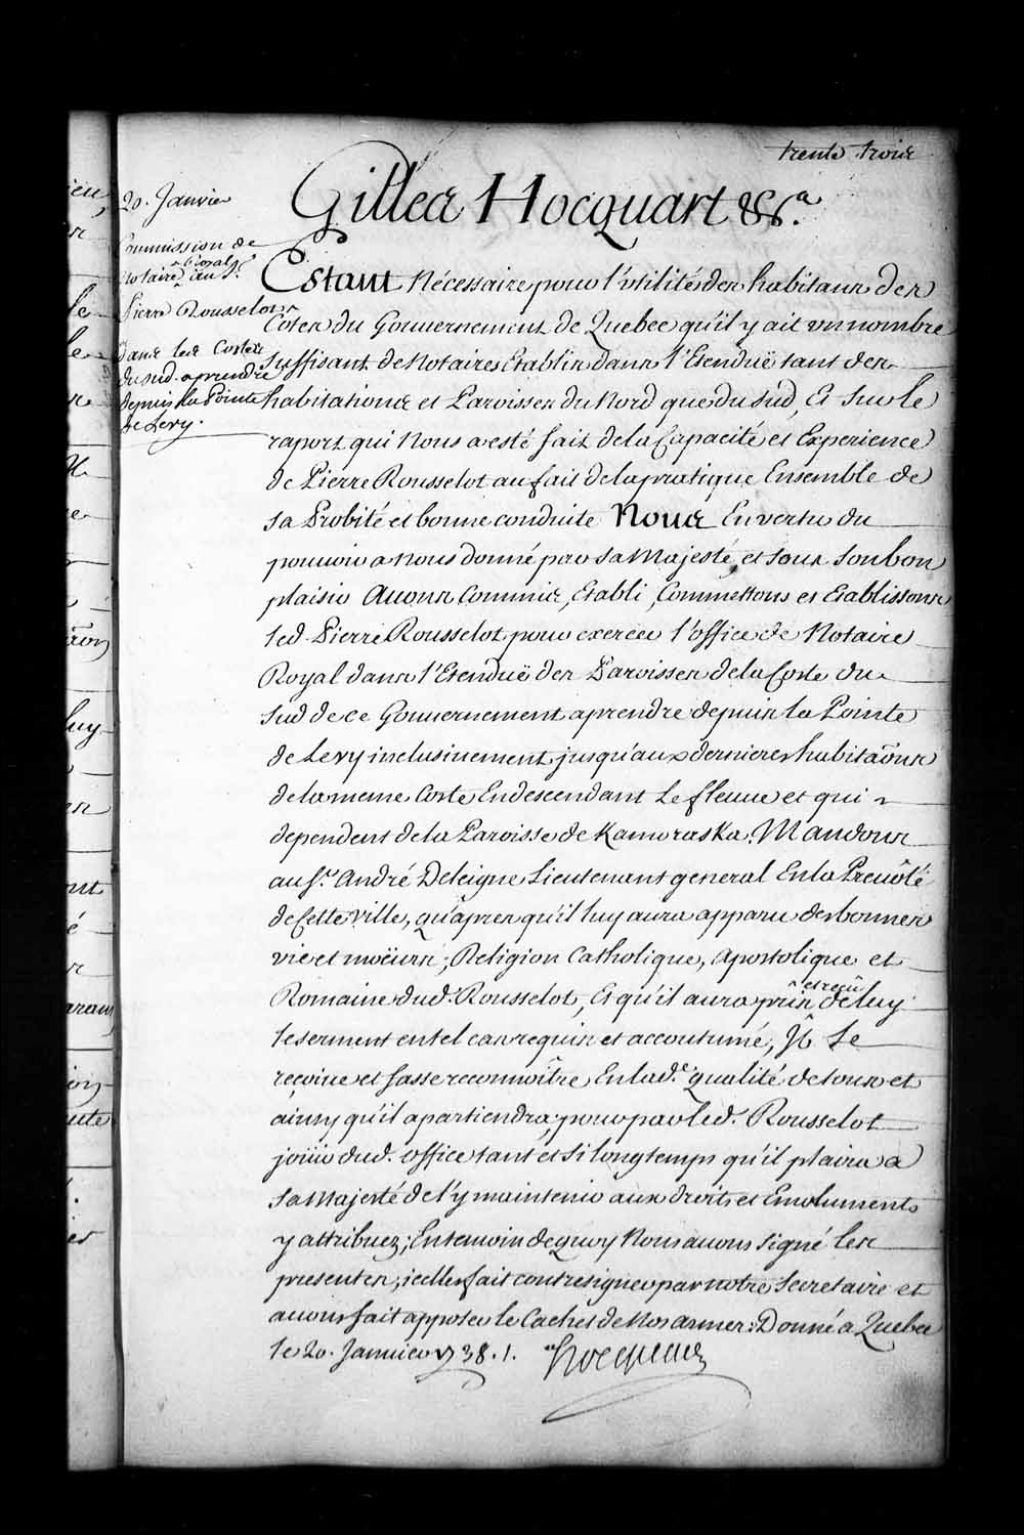 trente trois
Gilles Hocquart &c.ª
20. Janvier
Commission de
Notaire Royal au S.r
Pierre Rousselot
dans les Costes
du sud aprendre
depuis la Pointe
de Levy.
Estant Nécessaire pour l'utilité des habitans des
Costes du Gouvernement de Quebec qu'il y ait un nombre
suffisant de Notaires Etablis dans l'Etenduë tant des
habitations et Paroisses du Nord que du sud, Et sur le
raport qui Nous a esté fait de la Capacité et Experience
de Pierre Rousselot au fait de la pratique Ensemble de
sa Probité et bonne conduite Nous En vertu du
pouvoir a Nous donné par sa Majesté, et sous son bon
plaisir Avons Commis, Etabli, Commettons et Etablissons
led. Pierre Rousselot pour exercer l'office de Notaire
Royal dans l'Etenduë des Paroisses de la Coste du
sud de ce Gouvernement aprendre depuis la Pointe
de Levy inclusivement jusqu'aux dernieres habitãons
de la meme Coste En descendant Le fleuve et qui
dependent de la Paroisse de Kamuraska. Mandons
au S.r André Deleigne Lieutenant general En la Prevôté
de Cette ville, qu'apres qu'il luy aura apparu des bonnes
vie et moëurs; Religion Catholique, Apostolique et
Romaine dud. Rousselot, Et qu'il aura pris et reçu de luy
le serment en tel cas requis et accoutumé, Il Le
reçoive et fasse reconnoître En lad.e qualité de tous et
ainsy qu'il apartiendra, pour par led. Rousselot
joüir dud. office tant et Si longtemps qu'il plaira a
sa Majesté de l'y maintenir aux droits et Emoluments
y attribuez; En temoin de quoy Nous avons Signé les
presentes, icelles fait contresigner par notre Secretaire et
avons fait apposer le Cachet de Nos armes: Donné a Quebec
le 20. Janvier 1738. /. Hocquart